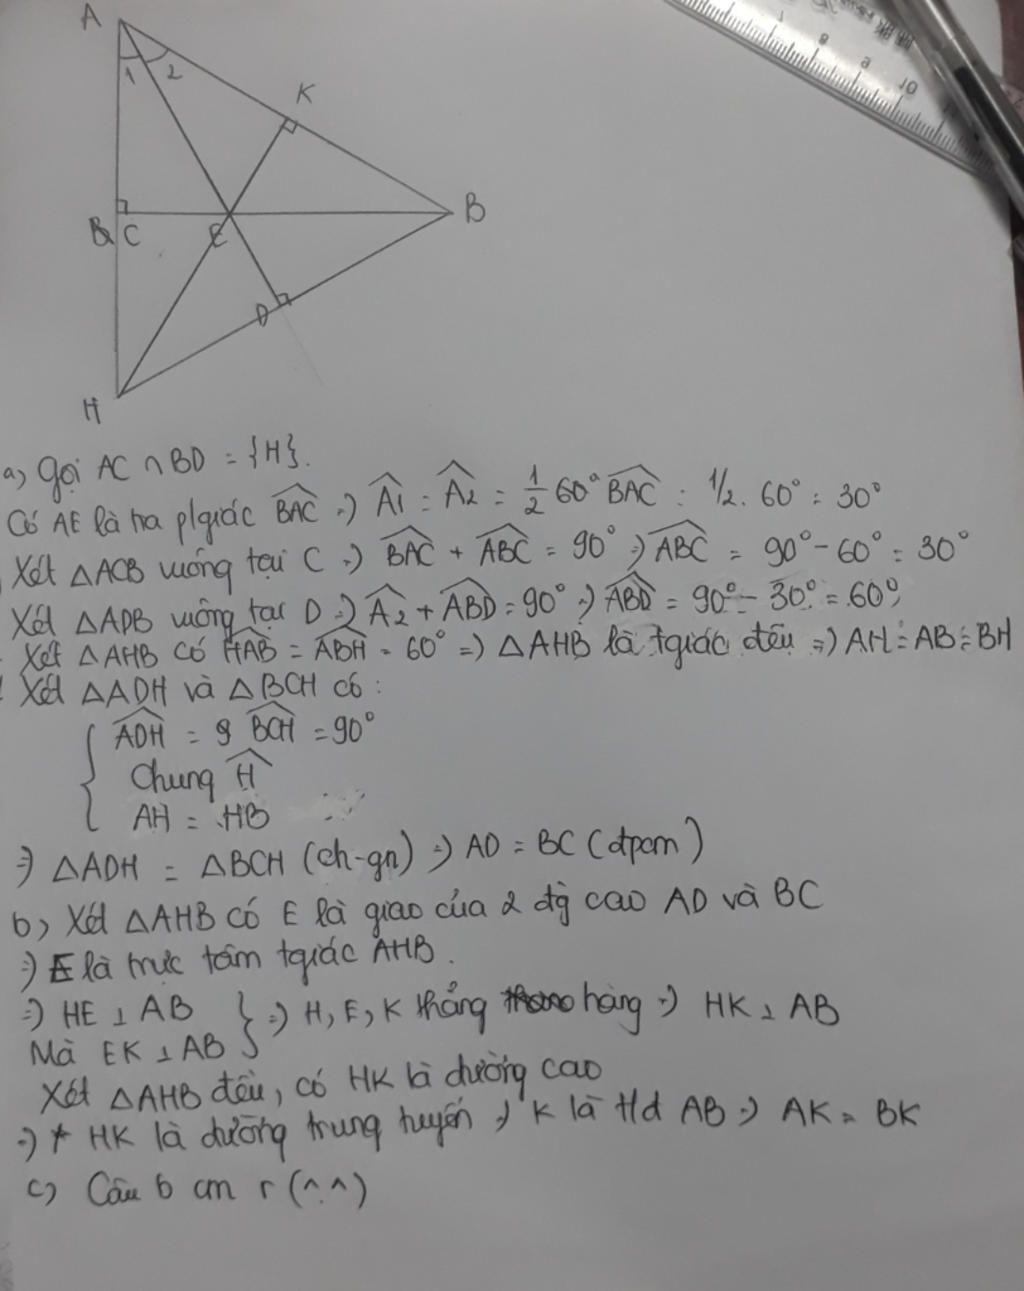 A
1 2
K
B
C
E
D
H
8 10
a, Gọi AC ∩ BD = {H}.
Có AE là tia p/giác BAC => A1 = A2 = 1/2 60° BAC = 1/2. 60° = 30°
Xét △ACB vuông tại C => BAC + ABC = 90° => ABC = 90° - 60° = 30°
Xét △ADB vuông tại D => A2 + ABD = 90° => ABD = 90° - 30° = 60°
Xét △AHB có HAB = ABH = 60° => △AHB là tgiác đều => AH = AB = BH
Xét △ADH và △BCH có:
ADH = BCH = 90°
Chung H
AH = HB
=> △ADH = △BCH (ch-gn) => AD = BC (đpcm)
b, Xét △AHB có E là giao của 2 đg cao AD và BC
=> E là trực tâm tgiác AHB.
=> HE ⊥ AB
Mà EK ⊥ AB } => H, E, K thẳng hàng => HK ⊥ AB
Xét △AHB đều, có HK là đường cao
=> HK là đường trung tuyến => K là tđ AB => AK = BK
c, Câu b cm r (^.^)